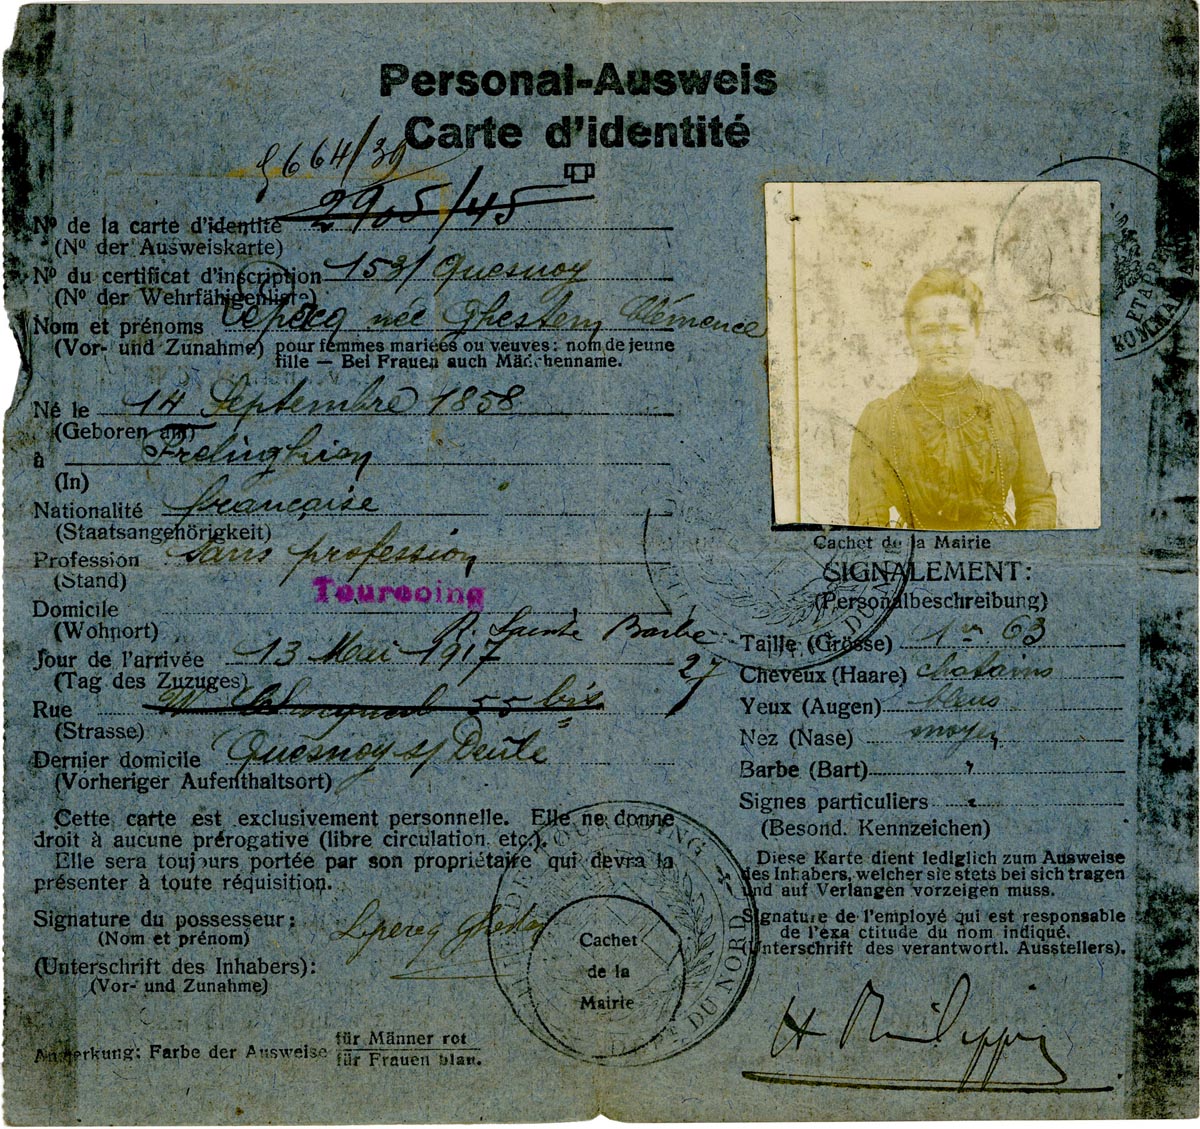 Personal-Ausweis
Carte d'identité
664/39
2905/45
Nº de la carte d'identité
(Nº der Ausweiskarte)
Nº du certificat d'inscription 153/Quesnoy
(Nº der Wehrfähigenliste)
Nom et prénoms Lepercq née Ghestem Clémence
(Vor- und Zunahme) pour femmes mariées ou veuves: nom de jeune
fille — Bei Frauen auch Mädchenname.
Né le 14 Septembre 1858
(Geboren am)
à Frelinghien
(In)
Nationalité française
(Staatsangehörigkeit)
Profession Sans profession
(Stand)
Tourcoing
Domicile
(Wohnort)
R. Sainte Barbe
27
Jour de l'arrivée 13 Mai 1917
(Tag des Zuzuges)
Rue 55 bis
(Strasse)
Dernier domicile Quesnoy s/ Deule
(Vorheriger Aufenthaltsort)
Cette carte est exclusivement personnelle. Elle ne donne
droit à aucune prérogative (libre circulation etc.).
Elle sera toujours portée par son propriétaire qui devra la
présenter à toute réquisition.
Signature du possesseur: Lepercq
(Nom et prénom)
(Unterschrift des Inhabers):
(Vor- und Zunahme)
Cachet
de la
Mairie
DE TOURCOING
DEPT DU NORD
Anmerkung: Farbe der Ausweise für Männer rot
für Frauen blau.
ETAPPEN
KOMMA
Cachet de la Mairie
SIGNALEMENT:
(Personalbeschreibung)
Taille (Grösse) 1m 63
Cheveux (Haare) chatains
Yeux (Augen) bleus
Nez (Nase) moyen
Barbe (Bart)
Signes particuliers
(Besond. Kennzeichen)
Diese Karte dient lediglich zum Ausweise
des Inhabers, welcher sie stets bei sich tragen
und auf Verlangen vorzeigen muss.
Signature de l'employé qui est responsable
de l'exa ctitude du nom indiqué.
(Unterschrift des verantwortl. Ausstellers).